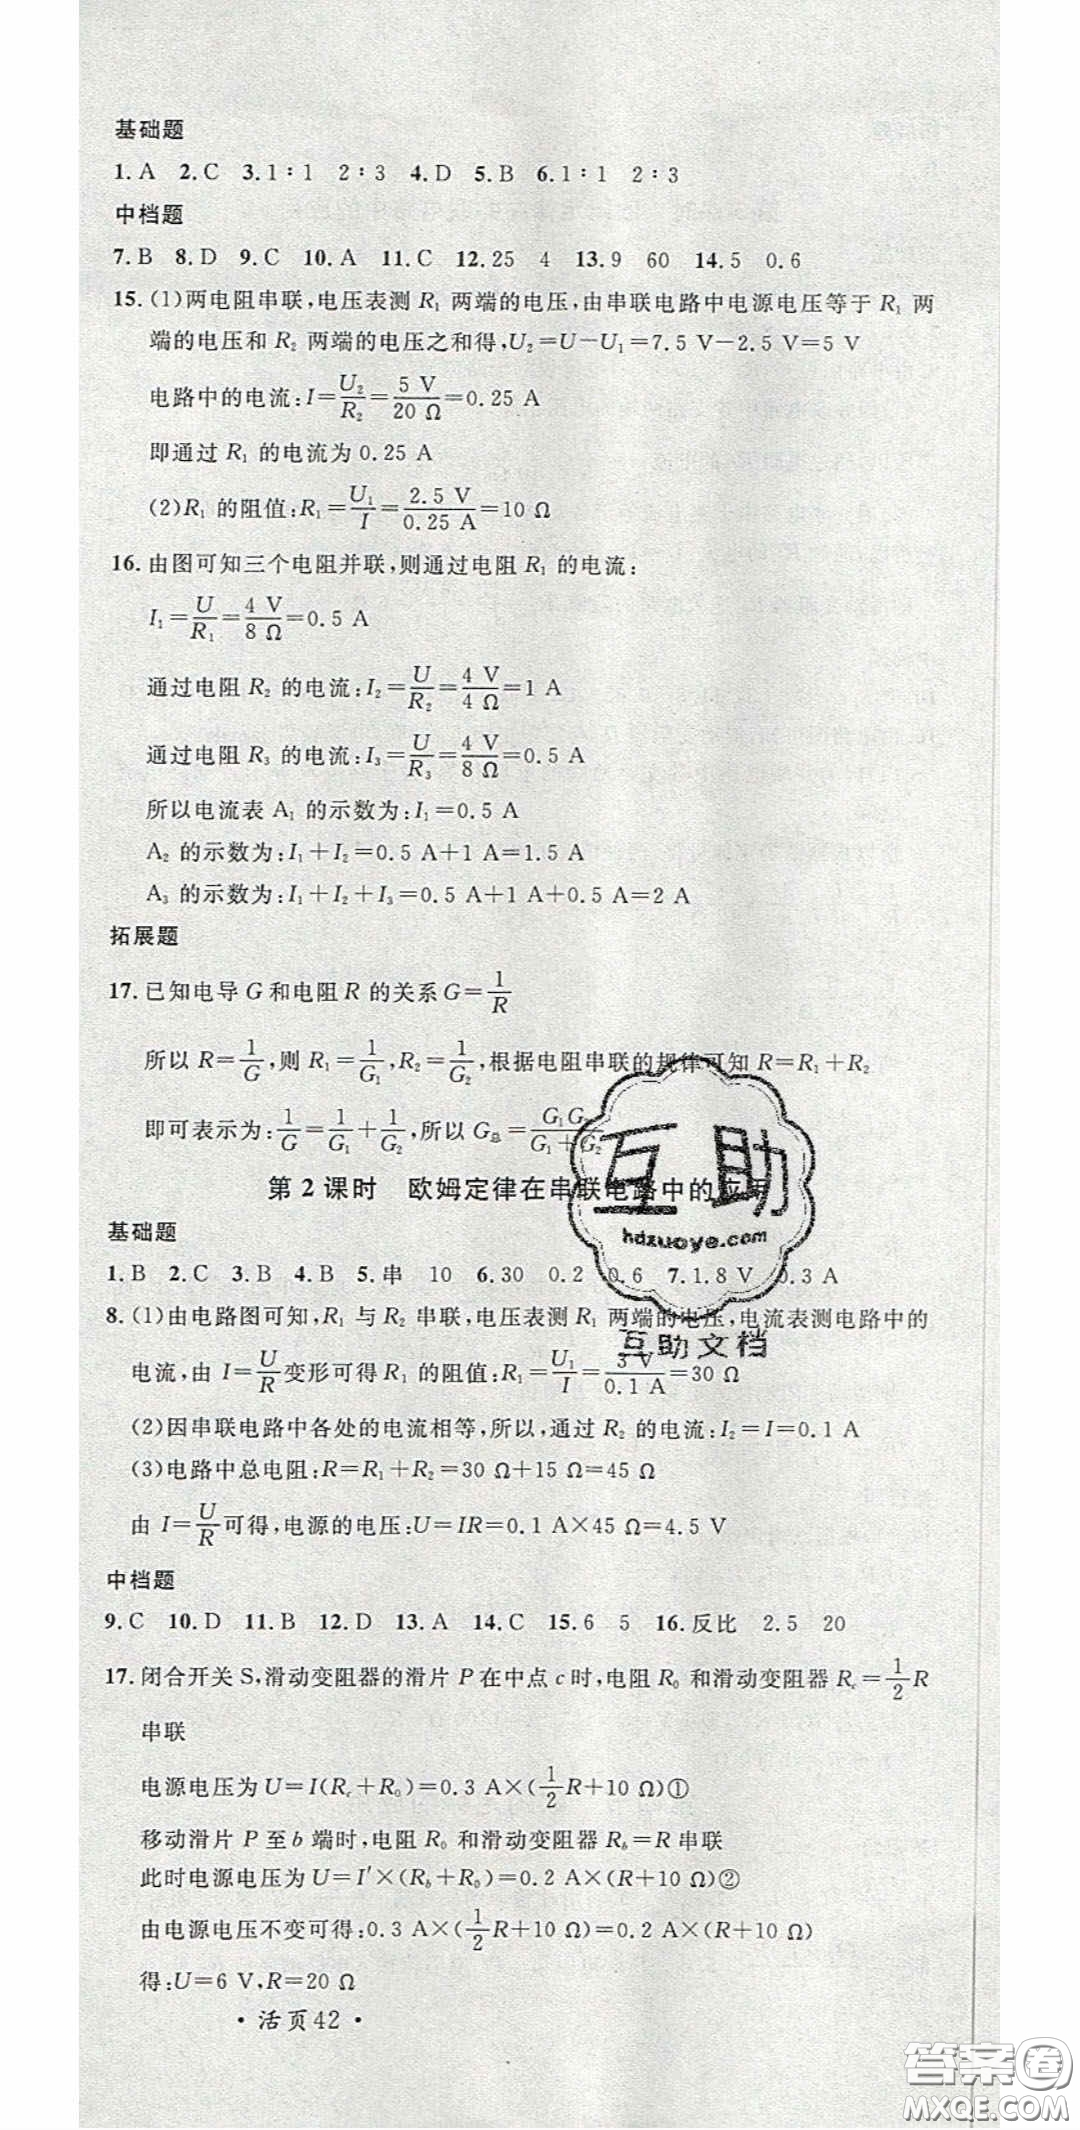 基础题
1. A 2. C 3. 1∶1 2∶3 4. D 5. B 6. 1∶1 2∶3
中档题
7. B 8. D 9. C 10. A 11. C 12. 25 4 13. 9 60 14. 5 0.6
15. (1)两电阻串联,电压表测 R₁ 两端的电压,由串联电路中电源电压等于 R₁ 两
端的电压和 R₂ 两端的电压之和得,U₂=U-U₁=7.5 V-2.5 V=5 V
电路中的电流:I=U₂/R₂=5 V/20 Ω=0.25 A
即通过 R₁ 的电流为 0.25 A
(2)R₁ 的阻值:R₁=U₁/I=2.5 V/0.25 A=10 Ω
16. 由图可知三个电阻并联,则通过电阻 R₁ 的电流:
I₁=U/R₁=4 V/8 Ω=0.5 A
通过电阻 R₂ 的电流:I₂=U/R₂=4 V/4 Ω=1 A
通过电阻 R₃ 的电流:I₃=U/R₃=4 V/8 Ω=0.5 A
所以电流表 A₁ 的示数为:I₁=0.5 A
A₂ 的示数为:I₁+I₂=0.5 A+1 A=1.5 A
A₃ 的示数为:I₁+I₂+I₃=0.5 A+1 A+0.5 A=2 A
拓展题
17. 已知电导 G 和电阻 R 的关系 G=1/R
所以 R=1/G,则 R₁=1/G₁,R₂=1/G₂,根据电阻串联的规律可知 R=R₁+R₂
即可表示为:1/G=1/G₁+1/G₂,所以 G总=G₁G₂/(G₁+G₂)
第 2 课时 欧姆定律在串联电路中的应用
基础题
1. B 2. C 3. B 4. B 5. 串 10 6. 30 0.2 0.6 7. 1.8 V 0.3 A
8. (1)由电路图可知,R₁ 与 R₂ 串联,电压表测 R₁ 两端的电压,电流表测电路中的
电流,由 I=U/R变形可得 R₁ 的阻值:R₁=U₁/I=3 V/0.1 A=30 Ω
(2)因串联电路中各处的电流相等,所以,通过 R₂ 的电流:I₂=I=0.1 A
(3)电路中总电阻:R=R₁+R₂=30 Ω+15 Ω=45 Ω
由 I=U/R可得,电源的电压:U=IR=0.1 A×45 Ω=4.5 V
中档题
9. C 10. D 11. B 12. D 13. A 14. C 15. 6 5 16. 反比 2.5 20
17. 闭合开关 S,滑动变阻器的滑片 P 在中点 c 时,电阻 R₀ 和滑动变阻器 Rc=1/2 R
串联
电源电压为 U=I(Rc+R₀)=0.3 A×(1/2 R+10 Ω)①
移动滑片 P 至 b 端时,电阻 R₀ 和滑动变阻器 Rb=R 串联
此时电源电压为 U=I′×(Rb+R₀)=0.2 A×(R+10 Ω)②
由电源电压不变可得:0.3 A×(1/2 R+10 Ω)=0.2 A×(R+10 Ω)
得:U=6 V,R=20 Ω
• 活页42 •
互助
hdzuoye.com
互助文档
答案圈
MXQE.COM